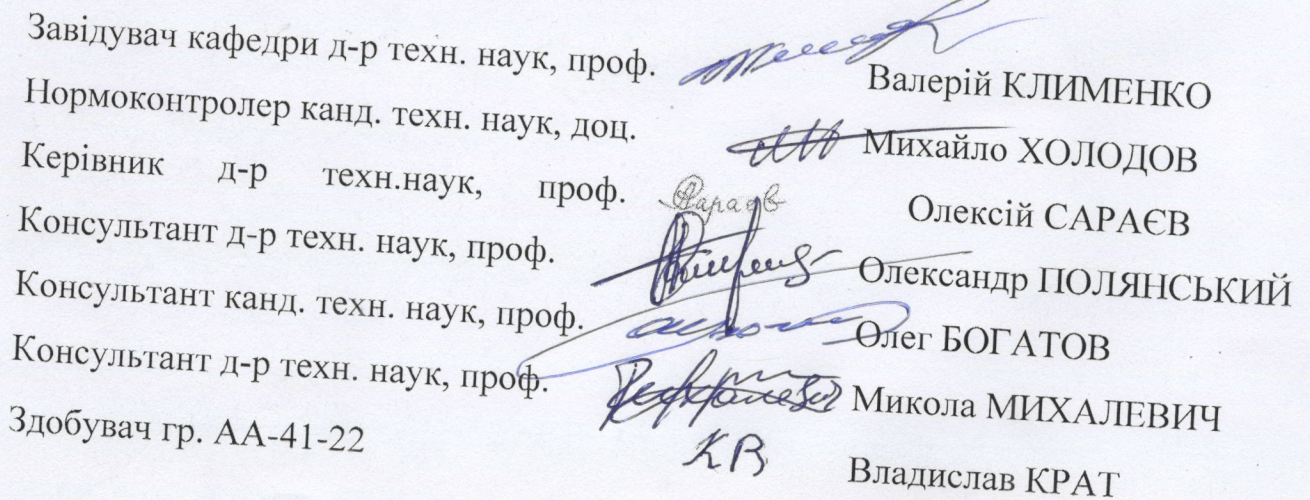 Завідувач кафедри д-р техн. наук, проф. Валерій КЛИМЕНКО
Нормоконтролер канд. техн. наук, доц. Михайло ХОЛОДОВ
Керівник д-р техн.наук, проф. Олексій САРАЄВ
Консультант д-р техн. наук, проф. Олександр ПОЛЯНСЬКИЙ
Консультант канд. техн. наук, проф. Олег БОГАТОВ
Консультант д-р техн. наук, проф. Микола МИХАЛЕВИЧ
Здобувач гр. АА-41-22 КВ Владислав КРАТ